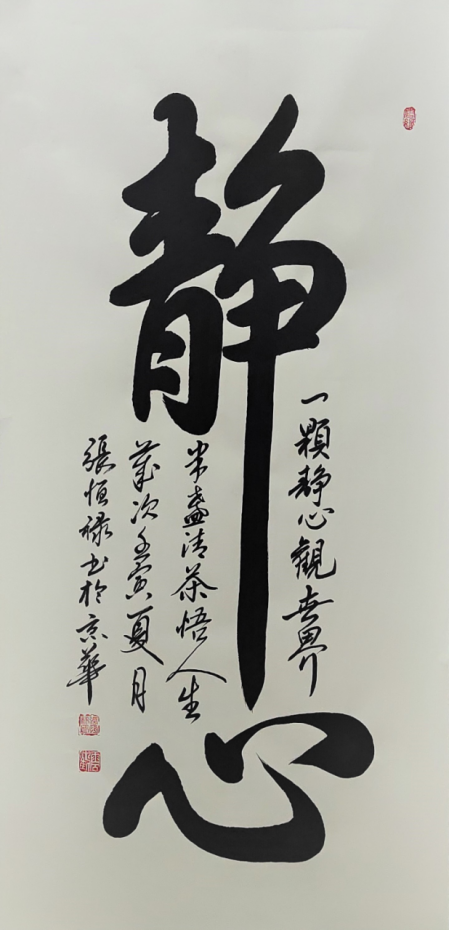 静心
一顆静心觀世界
半盞清茶悟人生
歲次壬寅夏月
張恒禄书於京華